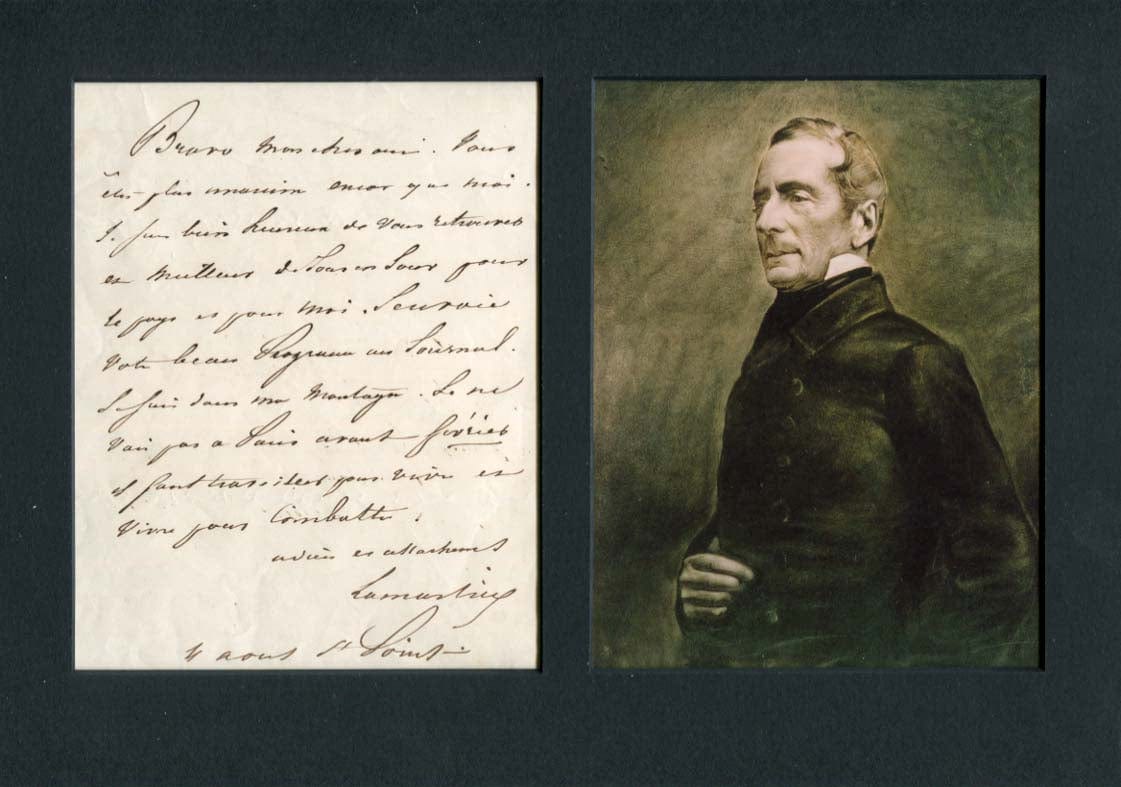 Bravo mon cher ami. Vous
êtes plus encor que moi.
Je suis bien heureux de vous retrouver
et meilleur de jour en jour pour
le pays et pour moi. J'envoie
votre beau Programme au Journal.
Je suis dans ma Montagne. Je ne
vais pas a Paris avant février
il faut travailler pour vivre et
vivre pour combattre.
adieu et attachement
Lamartine
4 aout St Point